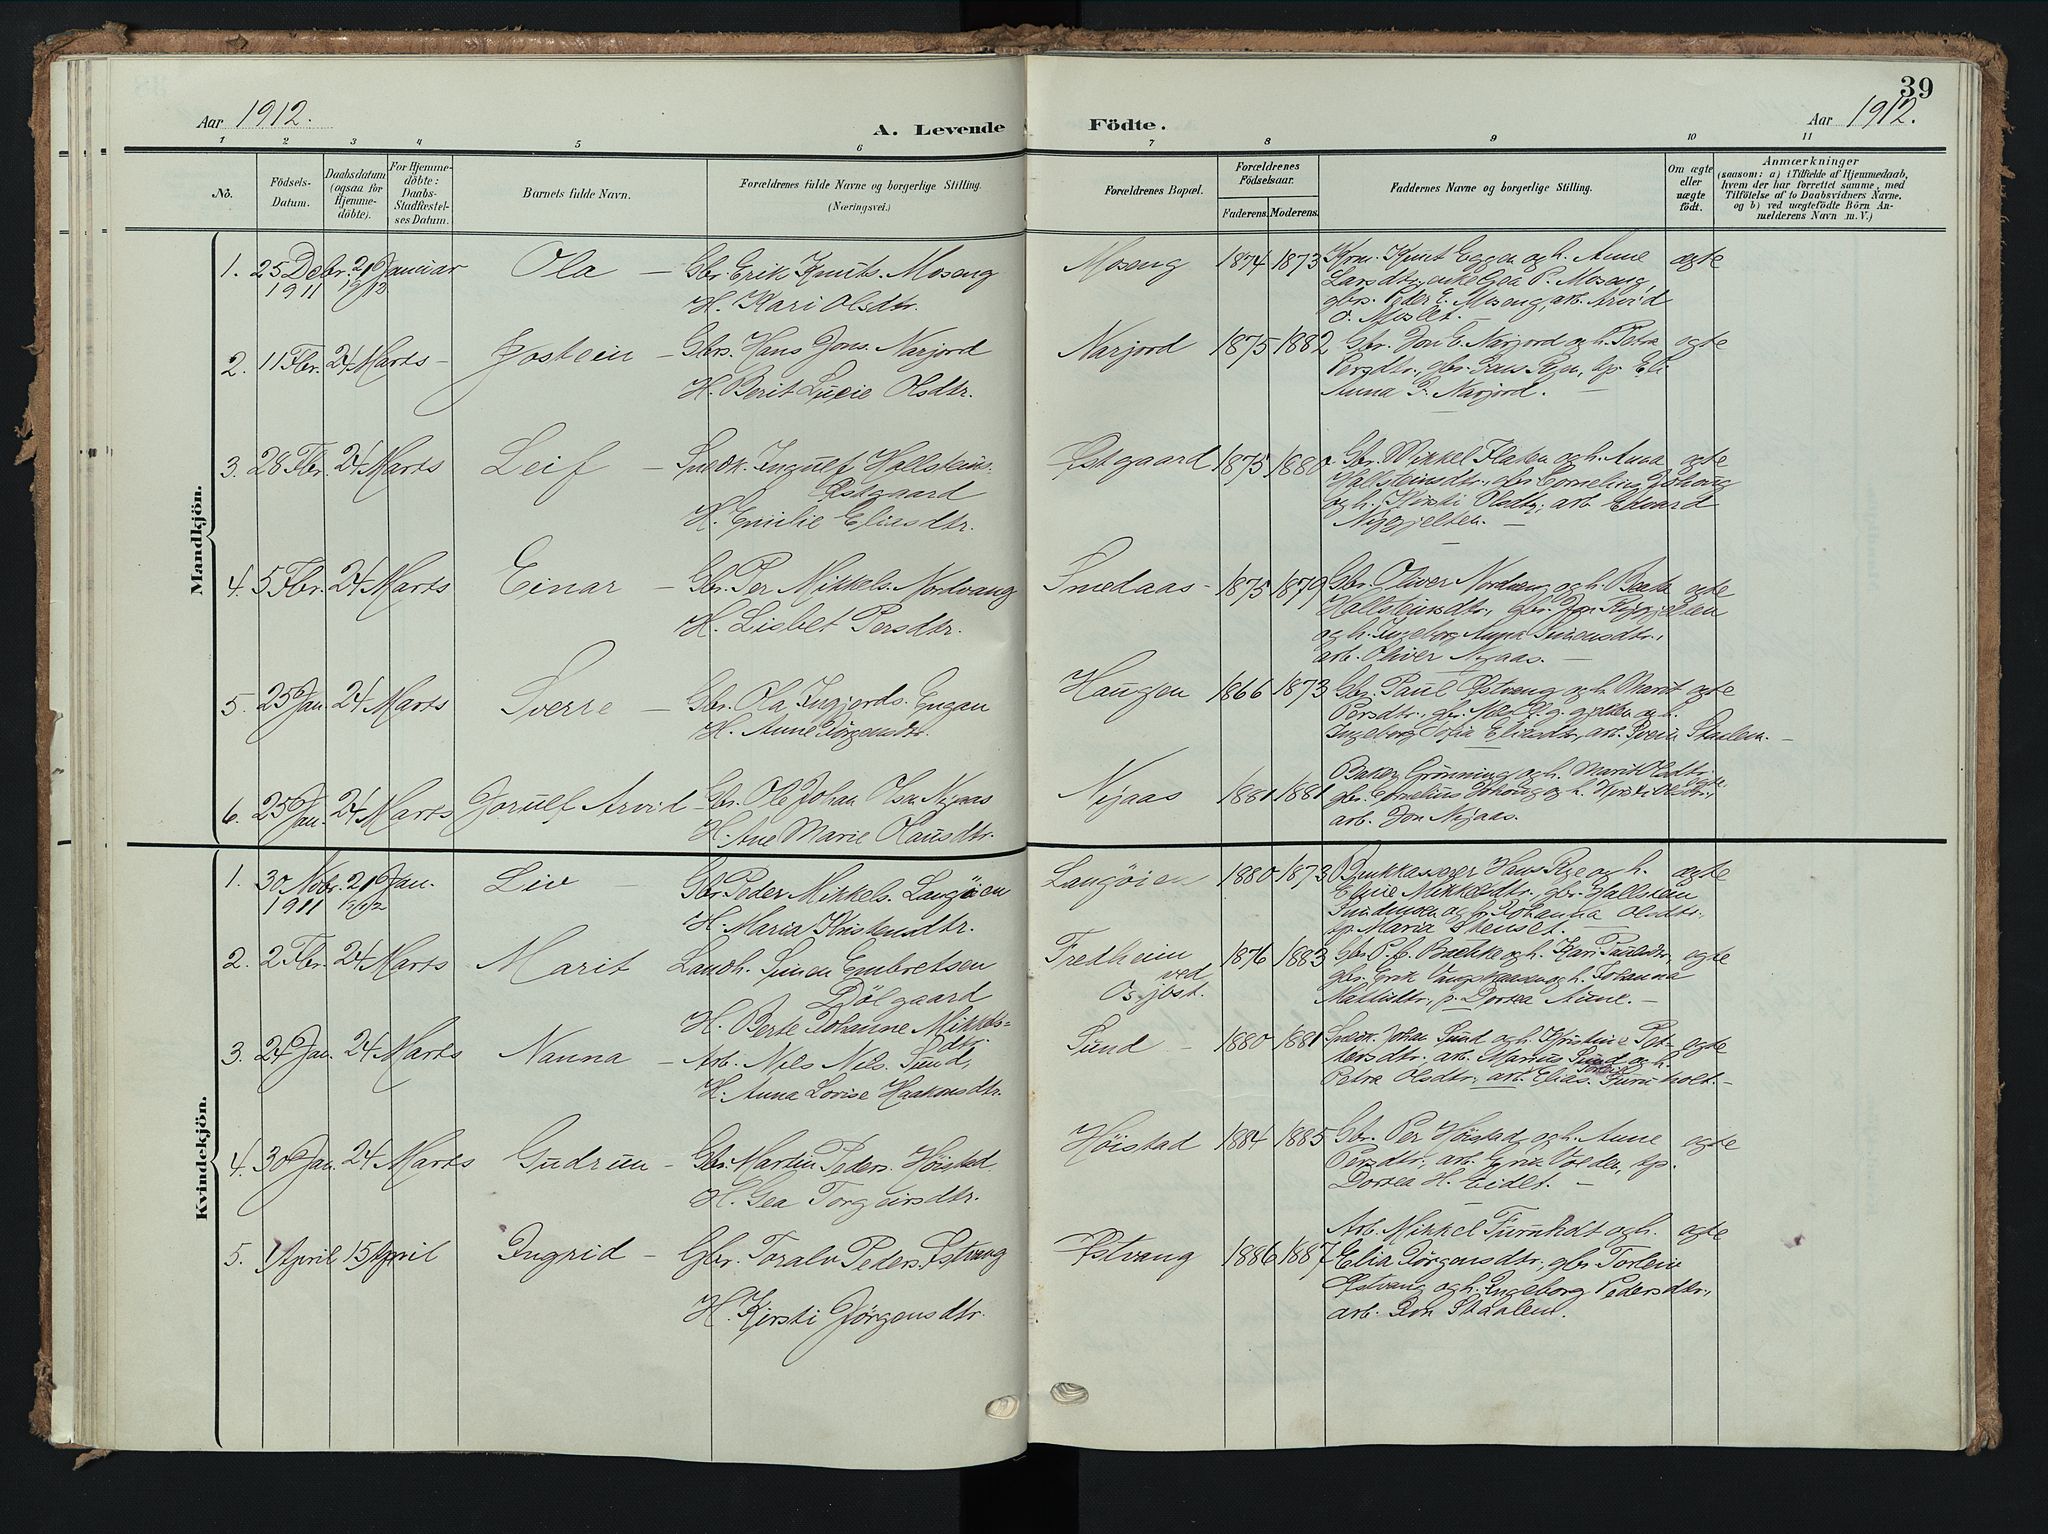 39
Aar 1912.
A. Levende Födte.
Aar 1912.
1 2 3 4 5 6 7 8 9 10 11
No.
Födsels-Datum.
Daabsdatum (ogsaa for Hjemme-döbte).
For Hjemme-döbte: Daabs-Stadfæstel-ses Datum.
Barnets fulde Navn.
Forældrenes fulde Navne og borgerlige Stilling.
(Næringsvei.)
Forældrenes Bopæl.
Forældrenes Födselsaar.
Faderens. Moderens.
Faddernes Navne og borgerlige Stilling.
Om ægte eller uægte födt.
Anmærkninger
(saasom: a) i Tilfælde af Hjemmedaab, hvem der har forrettet samme, med Tilföielse af to Daabsvidners Navne, og b) ved uægtefödte Börn An-melderens Navn m. V.)
Mandkjön.
1. 25 Debr. 1911 21 Januar Ola — Gbr. Erik Knuts. Moseng
H. Kari Olsdtr.
Moseng 1874 1873 Knut Eggen og h. Anne ægte
Larsdtr., enke Gea P. Moseng,
gbr. Peder E. Moseng, ark. Arvid
O. Moslet.
2. 11 Fbr. 24 Marts — Jostein — Gbrs. Hans Jons. Narjord
H. Berit Lucie Olsdtr.
Narjord 1875 1882 Gbr. Jon E. Narjord og h. Petra ægte
Persdtr., gbr. Hans Ryen, tp. Eli
Anna E. Narjord. —
3. 28 Fbr. 24 Marts Leif — Snedk. Ingulf Hallsteins.
Østgaard
H. Emilie Eliasdtr.
Østgaard 1875 1880 Gbr. Mikkel Flaten og h. Anna ægte
Hallsteinsdtr., gbr. Cornelius Johong
og h. Kirsti Olsdtr., arb. Edvard
Nygjelten. —
4. 5 Fbr. 24 Marts Einar — Gbr. Per Mikkels. Nordvang
H. Lisbet Persdtr.
Smedaas — 1875 1879 Gbr. Oliver Nordvang og h. Beate ægte
Hallsteinsdtr., gbr. Jon Nygjelten
og h. Ingeborg Anna Simensdtr.,
arb. Oliver Nyaas. —
5. 25 Jan. 24 Marts Sverre — Gbr. Ola Ingjords. Engan
H. Anne Jörgensdtr.
Haugen 1866 1873 Gbr. Paul Østvang og h. Marit ægte
Persdtr., gbr. Nils gjelten og h.
Ingeborg Sofia Eliasdtr., arb. Svein Staalen. —
6. 25 Jan. 24 Marts Jorulf Arvid — Gbr. Ole Johan Olsen Nyaas
H. Ane Marie Olausdtr.
Nyaas 1881 1881 Baker Grönning og h. Marit Olsdtr., ægte
gbr. Cornelius Johong og h. Kirsti Olsdtr.,
arb. Jon Nyaas.
Kvindekjön.
1. 30 Nobr. 1911 21 Jan. Liv — Gbr. Peder Mikkels. Langöien
H. Maria Kristensdtr.
Langöien 1880 1873 Brukkasserer Hans Rye og h. ægte
Eline Mikkelsdtr., gbr. Hallstein
og h. Johanna Olsdtr.,
tp. Maria Stenset. —
2. 2 Fbr. 24 Marts Marit Landh. Simen Embretsen
Dölgaard
H. Berte Johanne Mikkels-
dtr.
Fredheim
ved
Os jbst.
1876 1883 Gbr. P. E. Brække og h. Kari Paulsdtr., ægte
gbr. Erik Vangskaasen og h. Johanna
Mattisdtr., p. Dortea Aune. —
3. 24 Jan. 24 Marts Nanna — Arb. Nils Nils. Sund,
H. Anna Lovise Haakonsdtr.
Sund — 1880 1881 Snedk. Johan Sund og h. Kristine Pet- ægte
tersdtr. arb. Marius Sund og h.
Petra Olsdtr., arb. Elias. Furuholt. —
4. 30 Jan. 24 Marts Gudrun — Gbr. Martin Peders. Höistad.
H. Gea Torgeirsdtr.
Höistad 1884 1885 Gbr. Per Höistad og h. Anne ægte
Persdtr., arb. Erik Volden, tp.
Dortea H. Eidet —
5. 1 April 15 April Ingrid — Gbr. Toralv Peders. Østvang
H. Kirsti Jörgensdtr.
Østvang 1886 1887 Arb. Mikkel Furuholt og h. ægte
Elia Jörgensdtr., gbr. Torlein
Østvang og h. Ingeborg Pedersdtr.,
arb. Jon Staalen.